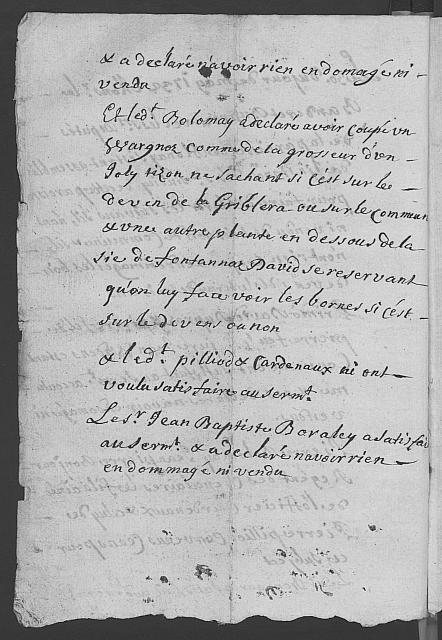 & a declaré n'avoir rien endomagé ni
vendu
Et led.t Bolomay a declaré avoir coupé un
comme de la grosseur d'un
joly tizon ne sachant si c'est sur le
deven de la Griblera ou sur le commun
& une autre plante en dessous de la
sie de fontannaz David se reservant
qu'on luy face voir les bornes si c'est
sur le devens ou non
& led.t pilliod & Cardenaux ni ont
voulu satisfaire au serm.t
Le s.r Jean Baptiste Boraley a satisfai
au serm.t & a declaré n'avoir rien
endommagé ni vendu